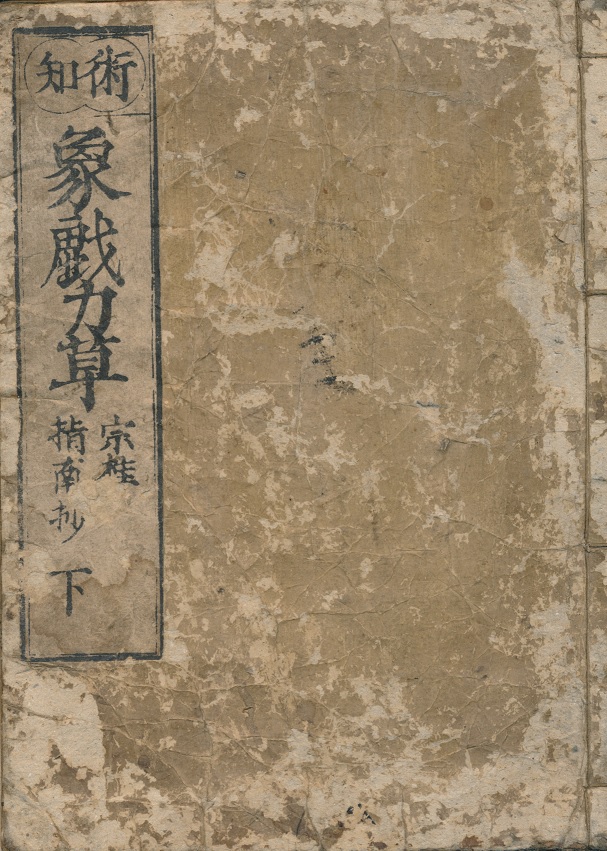 術知
象戯力草
宗桂
指南抄
下